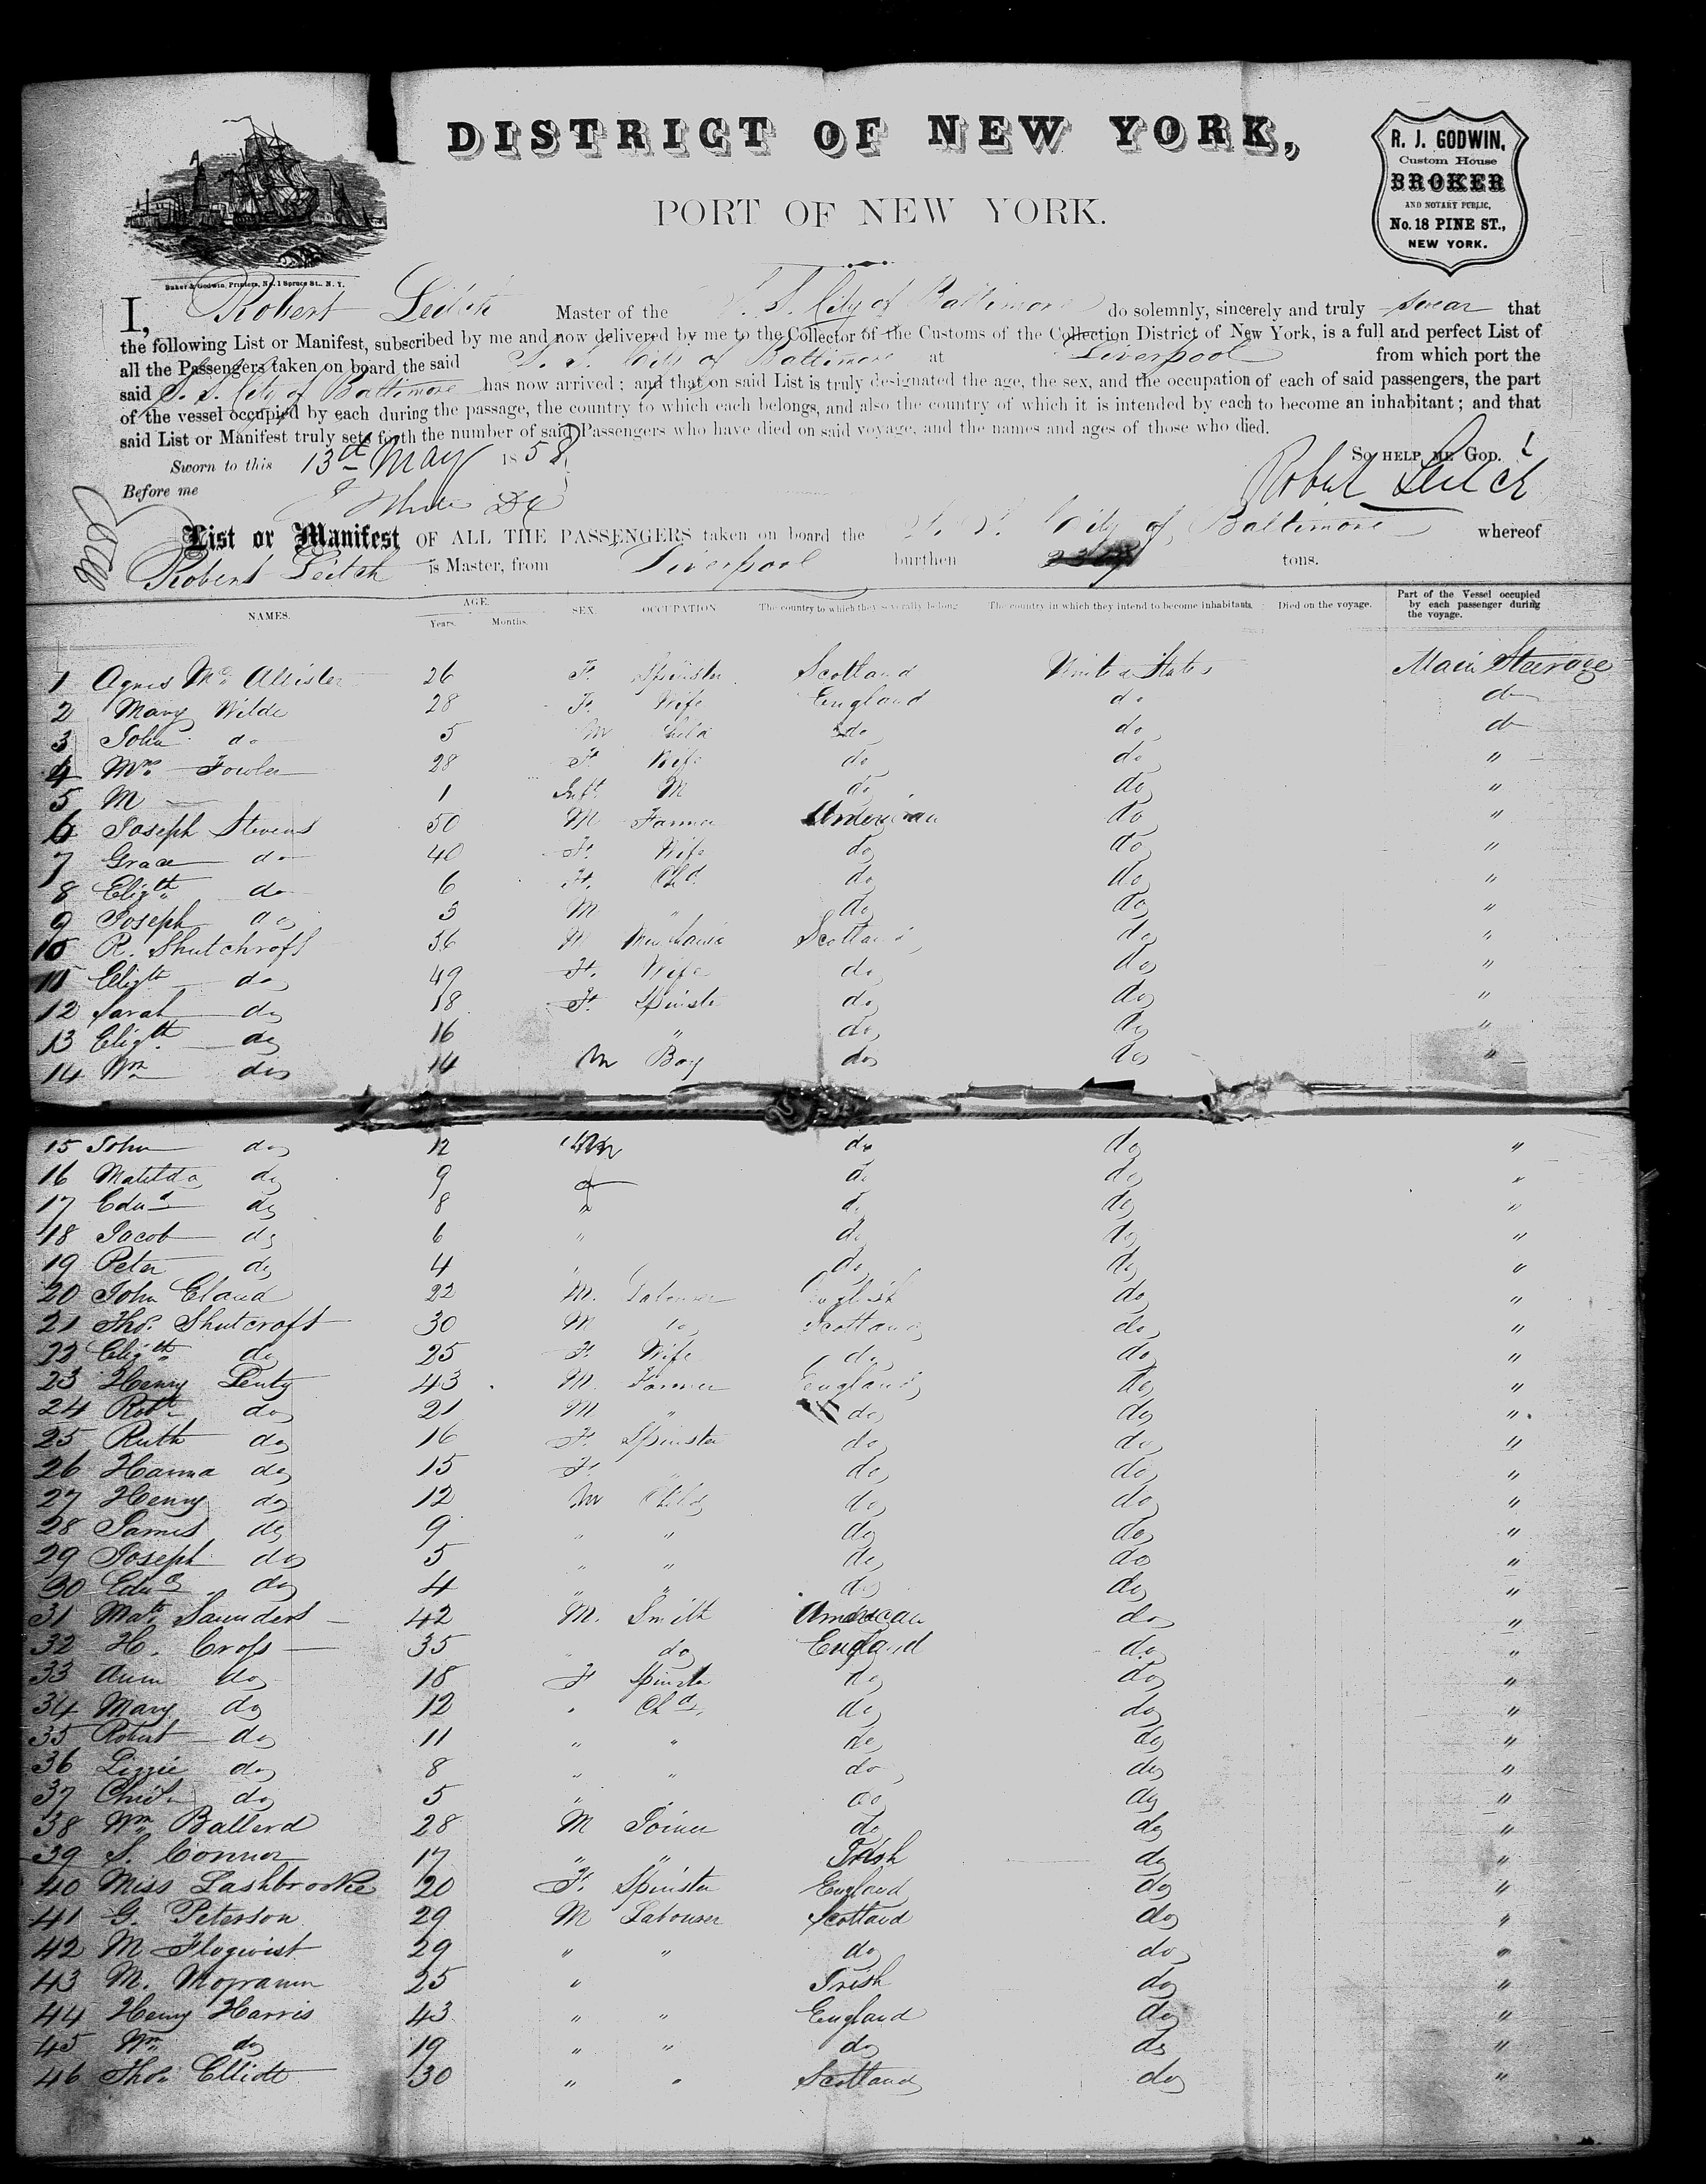 DISTRICT OF NEW YORK,
PORT OF NEW YORK.
R. J. GODWIN,
Custom House
BROKER
AND NOTARY PUBLIC,
No. 18 PINE ST.,
NEW YORK.
Baker & Godwin, Printers, No. 1 Spruce St., N. Y.
I, Robert Leitch Master of the S. S. City of Baltimore do solemnly, sincerely and truly swear that
the following List or Manifest, subscribed by me and now delivered by me to the Collector of the Customs of the Collection District of New York, is a full and perfect List of
all the Passengers taken on board the said S. S. City of Baltimore at Liverpool from which port the
said S. S. City of Baltimore has now arrived; and that on said List is truly designated the age, the sex, and the occupation of each of said passengers, the part
of the vessel occupied by each during the passage, the country to which each belongs, and also the country of which it is intended by each to become an inhabitant; and that
said List or Manifest truly sets forth the number of said Passengers who have died on said voyage, and the names and ages of those who died.
Sworn to this 13th May 1858 So HELP ME GOD.
Before me Robert Leitch
List or Manifest OF ALL THE PASSENGERS taken on board the S. S. City of Baltimore whereof
Robert Leitch is Master, from Liverpool burthen tons.
NAMES. AGE. Years. Months. SEX. OCCUPATION The country to which they severally belong The country in which they intend to become inhabitants. Died on the voyage. Part of the Vessel occupied by each passenger during the voyage.
1 Agnes Mc Allister 26 F. Spinster Scotland United States Main Steerage
2 Mary Wilde 28 F. Wife England do do
3 John do 5 M Child do do do
4 Mrs Fowler 28 F. Wife do do "
5 M 1 Inft M do do "
6 Joseph Stevens 50 M Farmer American do "
7 Grace do 40 F. Wife do do "
8 Elizth do 6 F. Chd. do do "
9 Joseph do 3 M " do do "
10 R. Shutchroft 36 M Mechanic Scotland do "
11 Elizth do 49 F. Wife do do "
12 Sarah do 18 F. Spinster do do "
13 Elizth do 16 " do do "
14 Wm do 14 M Boy do do "
15 John do 12 do do "
16 Matilda do 9 f do do "
17 Edwd do 8 do do "
18 Jacob do 6 " do do "
19 Peter do 4 do do "
20 John Eland 22 M. Labourer English do "
21 Thos. Shutcroft 30 M do Scotland do "
22 Elizth do 25 F. Wife do do "
23 Henry Lenty 43 M. Farmer England do "
24 Robt do 21 M " do do "
25 Ruth do 16 F. Spinster do do "
26 Hanna do 15 F. do do "
27 Henry do 12 M Child do do "
28 James do 9 " " do do "
29 Joseph do 5 " " do do "
30 Edwd do 4 " " do do "
31 Matt. Saunders 42 M. Smith American do "
32 H. Cross 35 " do England do "
33 Ann do 18 F Spinster do do "
34 Mary do 12 " Chd. do do "
35 Robert do 11 " " do do "
36 Lizzie do 8 " " do do "
37 do 5 " " do do "
38 Wm Ballard 28 M Joiner do do "
39 S. Connor 17 " " Irish do "
40 Miss Lashbrooke 20 F. Spinster England do "
41 G. Peterson 29 M Labourer Scotland do "
42 M 29 " " do do "
43 M. 25 " Irish do "
44 Henry Harris 43 " " England do "
45 Wm do 19 " " do do "
46 Thos. Elliott 30 " " Scotland do "